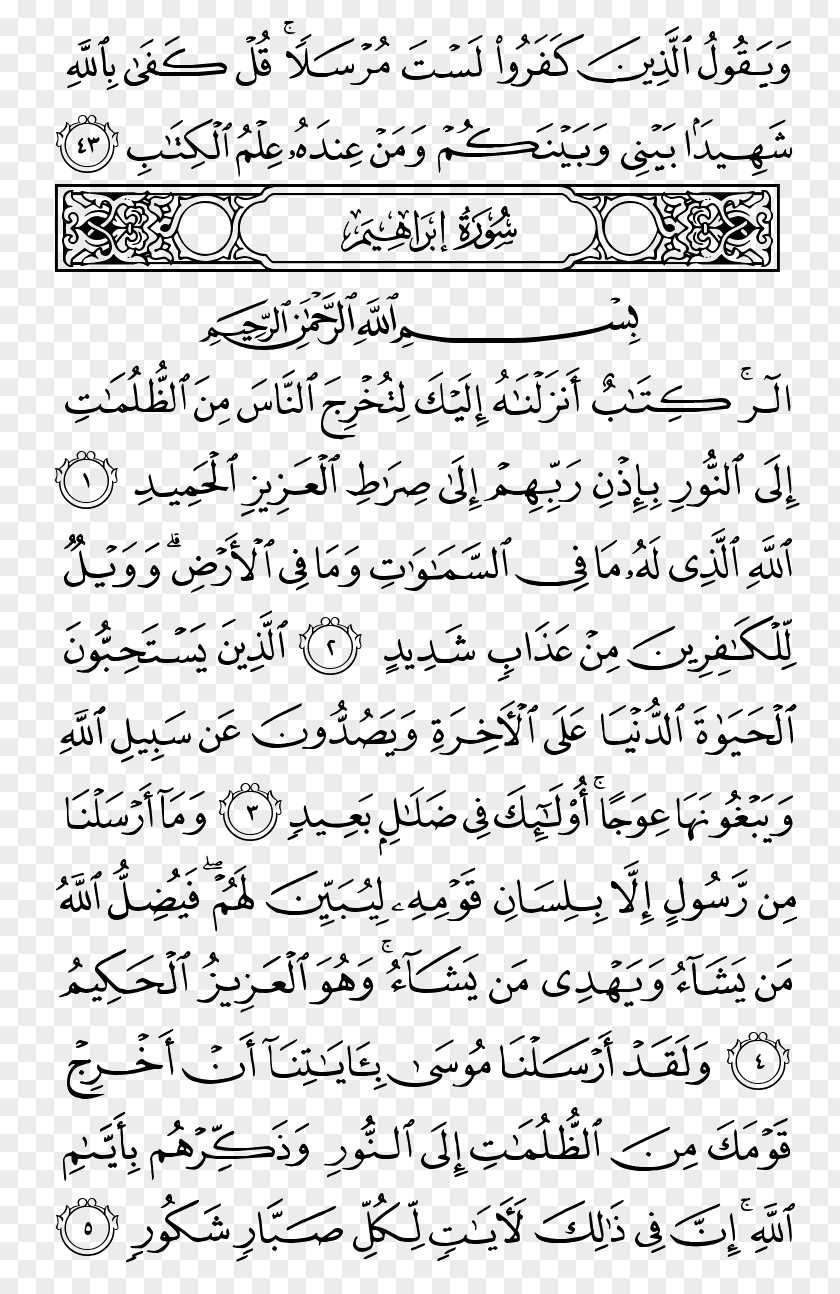 وَيَقُولُ ٱلَّذِينَ كَفَرُوا۟ لَسْتَ مُرْسَلًا ۚ قُلْ كَفَىٰ بِٱللَّهِ
شَهِيدًۢا بَيْنِى وَبَيْنَكُمْ وَمَنْ عِندَهُۥ عِلْمُ ٱلْكِتَـٰبِ ٤٣
سُورَةُ إِبْرَاهِيمَ
بِسْمِ ٱللَّهِ ٱلرَّحْمَـٰنِ ٱلرَّحِيمِ
الٓر ۚ كِتَـٰبٌ أَنزَلْنَـٰهُ إِلَيْكَ لِتُخْرِجَ ٱلنَّاسَ مِنَ ٱلظُّلُمَـٰتِ
إِلَى ٱلنُّورِ بِإِذْنِ رَبِّهِمْ إِلَىٰ صِرَٰطِ ٱلْعَزِيزِ ٱلْحَمِيدِ ١
ٱللَّهِ ٱلَّذِى لَهُۥ مَا فِى ٱلسَّمَـٰوَٰتِ وَمَا فِى ٱلْأَرْضِ ۗ وَوَيْلٌ
لِّلْكَـٰفِرِينَ مِنْ عَذَابٍ شَدِيدٍ ٢ ٱلَّذِينَ يَسْتَحِبُّونَ
ٱلْحَيَوٰةَ ٱلدُّنْيَا عَلَى ٱلْـَٔاخِرَةِ وَيَصُدُّونَ عَن سَبِيلِ ٱللَّهِ
وَيَبْغُونَهَا عِوَجًا ۚ أُو۟لَـٰٓئِكَ فِى ضَلَـٰلٍۭ بَعِيدٍ ٣ وَمَآ أَرْسَلْنَا
مِن رَّسُولٍ إِلَّا بِلِسَانِ قَوْمِهِۦ لِيُبَيِّنَ لَهُمْ ۖ فَيُضِلُّ ٱللَّهُ
مَن يَشَآءُ وَيَهْدِى مَن يَشَآءُ ۚ وَهُوَ ٱلْعَزِيزُ ٱلْحَكِيمُ
٤ وَلَقَدْ أَرْسَلْنَا مُوسَىٰ بِـَٔايَـٰتِنَآ أَنْ أَخْرِجْ
قَوْمَكَ مِنَ ٱلظُّلُمَـٰتِ إِلَى ٱلنُّورِ وَذَكِّرْهُم بِأَيَّىٰمِ
ٱللَّهِ ۚ إِنَّ فِى ذَٰلِكَ لَـَٔايَـٰتٍ لِّكُلِّ صَبَّارٍ شَكُورٍ ٥